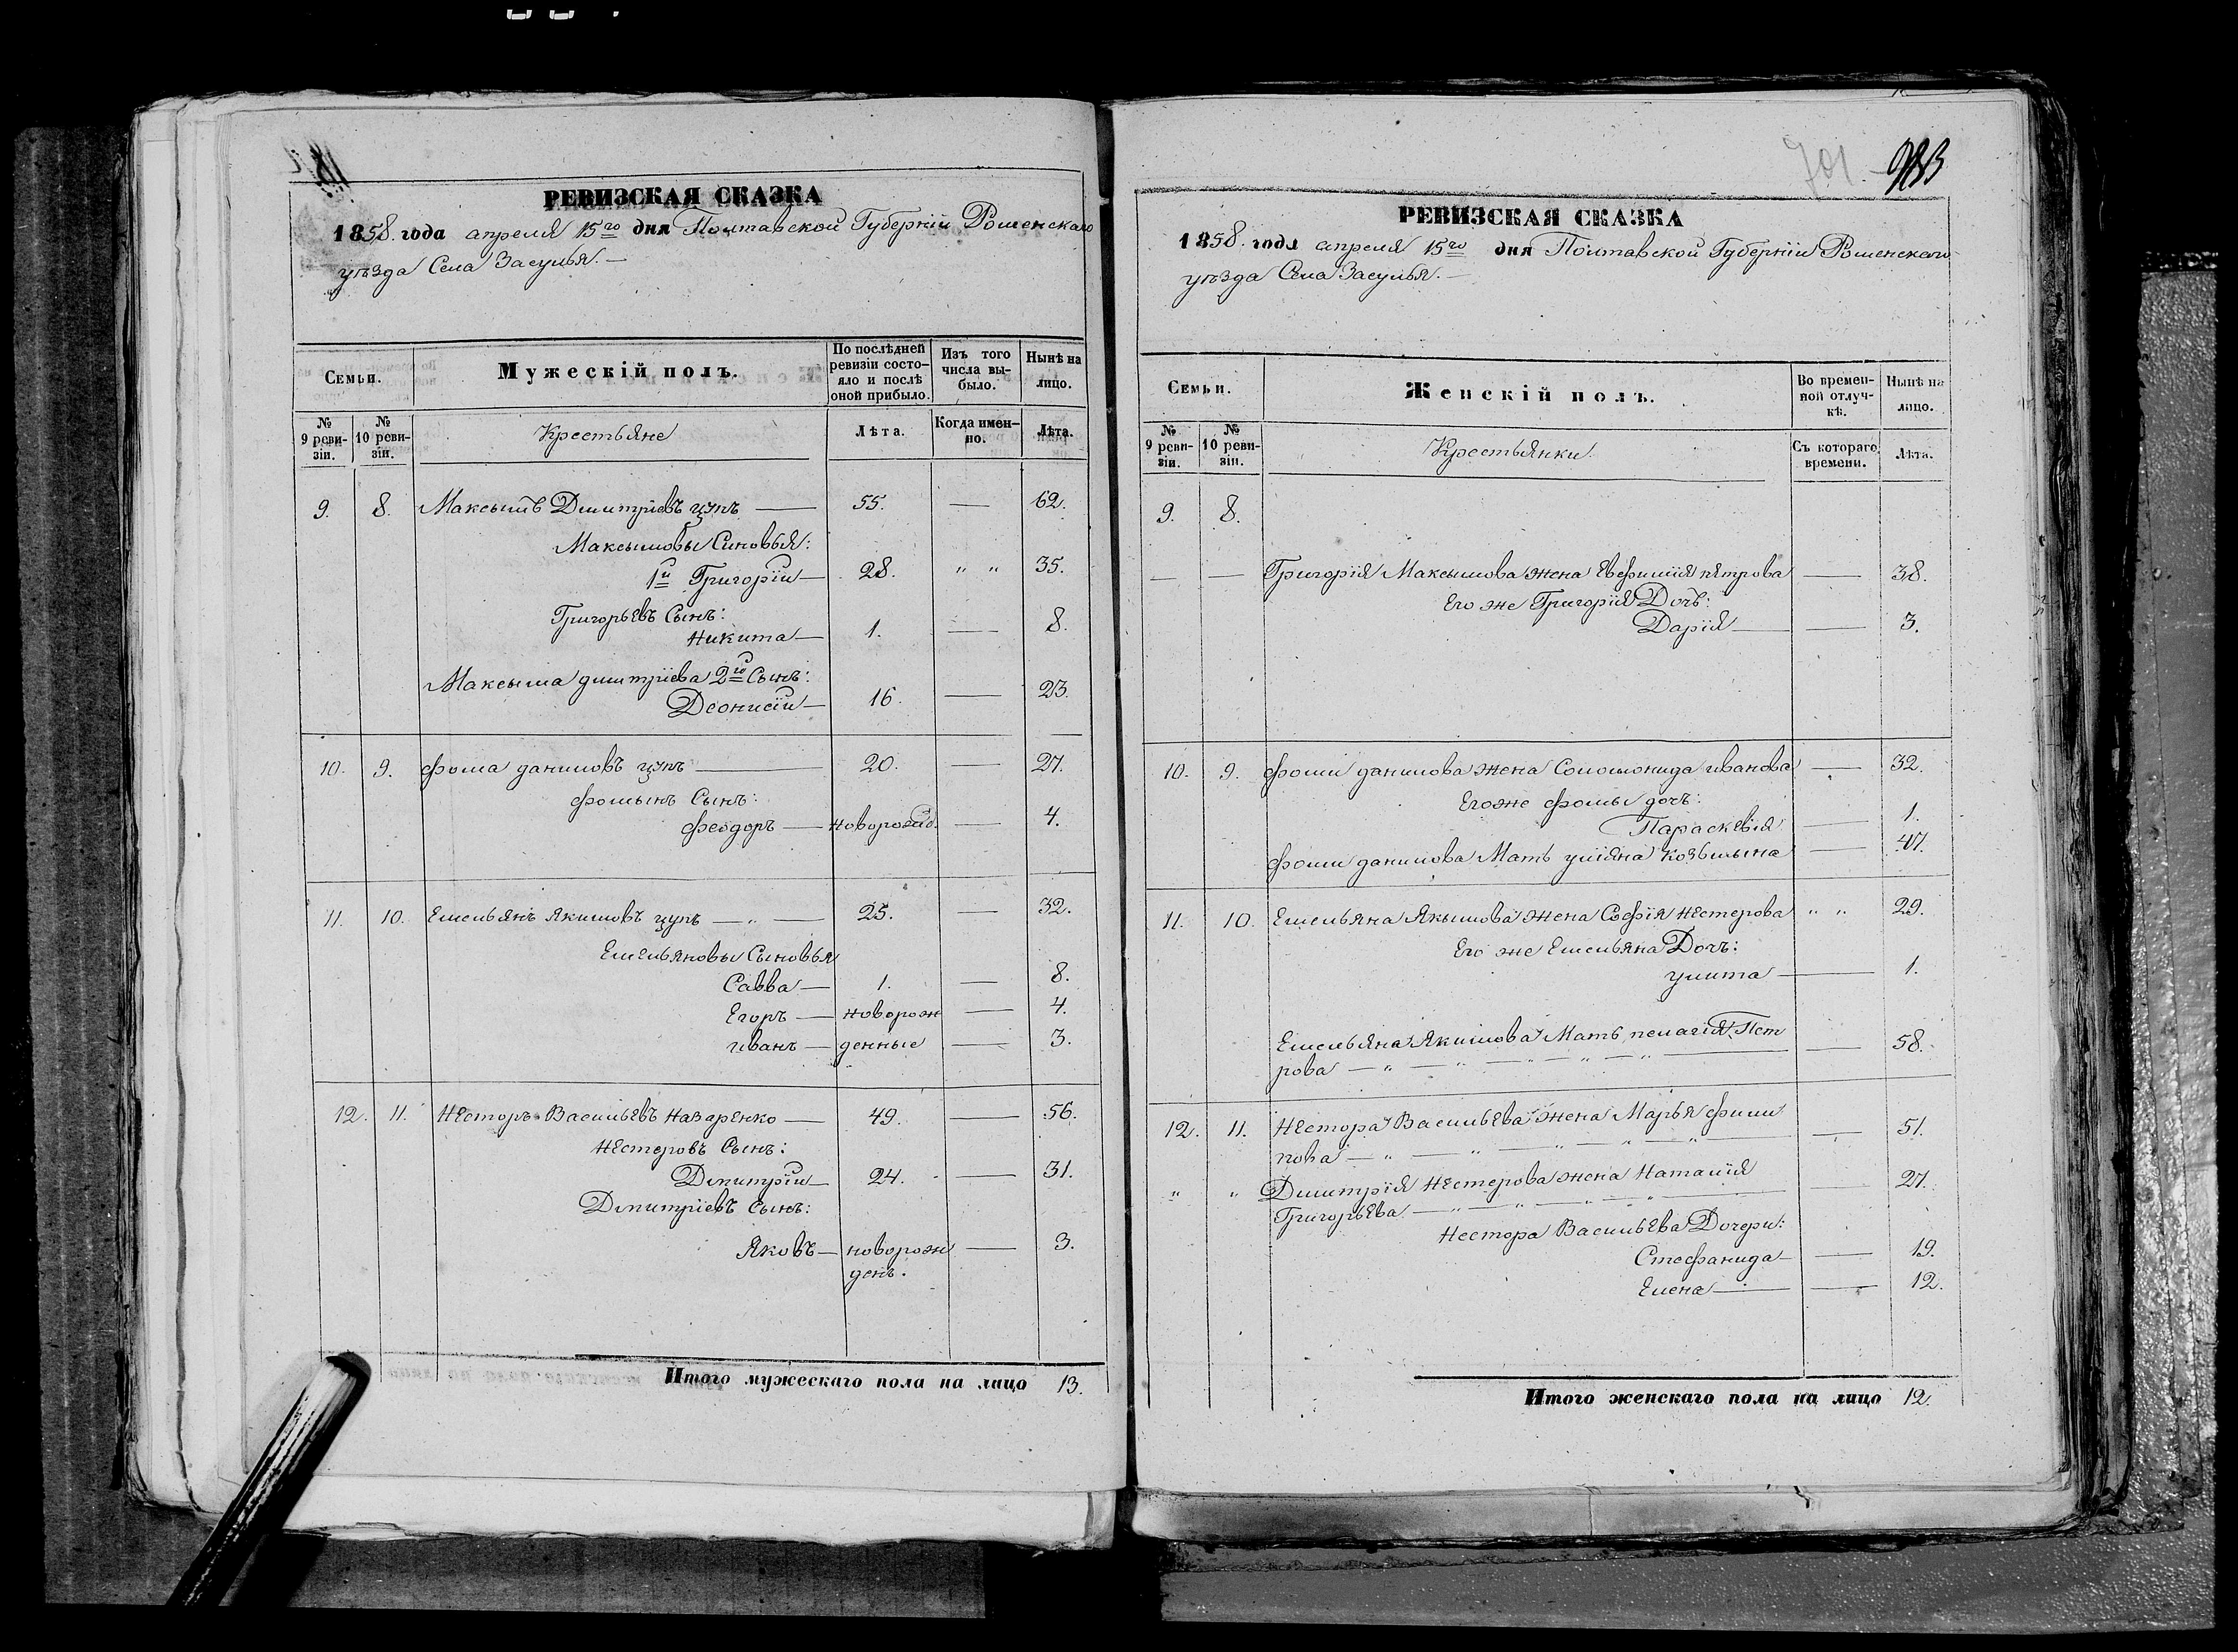 РЕВИЗСКАЯ СКАЗКА
1858. года апреля 15го дня Полтавской Губернiи Роменскаго
уѣзда Села Засулья. —
Семьи.
Мужескiй полъ.
По послѣдней ревизiи состояло и послѣ оной прибыло.
Изъ того числа выбыло.
Нынѣ на лицо.
№ 9 ревизiи.
№ 10 ревизiи.
Крестьяне
Лѣта.
Когда именно.
Лѣта.
9. 8. Максымъ Дмитрiевъ цупъ — 55. — 62.
Максымовы Синовья:
1й Григорiй — 28. " " 35.
Григорьевъ Сынъ:
Никита — 1. — 8.
Максыма дмитрiева 2й Сынъ:
Деонисiй — 16. — 23.
10. 9. фома даниловъ цупъ — 20. — 27.
фомынъ Сынъ:
феодоръ — новорожд. — 4.
11. 10. Емельянъ Якимовъ цупъ — " — 25. — 32.
Емельяновы Сыновья
Савва — 1. — 8.
Егоръ — новорож — 4.
иванъ — денные — 3.
12. 11. Несторъ Васильевъ Назаренко — 49. — 56.
Нестеровъ Сынъ:
Дмитрiй — 24. — 31.
Дмитрiевъ Сынъ:
Яковъ — новорож — 3.
денъ.
Итого мужескаго пола на лицо 13.
701
РЕВИЗСКАЯ СКАЗКА
1858. года апреля 15го дня Полтавской Губернiи Роменскаго
уѣзда Села Засулья. —
Семьи.
Женскiй полъ.
Во временной отлучкѣ.
Нынѣ на лицо.
№ 9 ревизiи.
№ 10 ревизiи.
Крестьянки
Съ котораго времени.
Лѣта.
9. 8.
— — Григорiя Максымова жена Евфимiя пѣтрова — 38.
Его же Григорiя Дочь:
Дарiя — — 3.
10. 9. фоми данилова жена Соломонида иванова — 32.
Егоже фомы дочь:
Параскевiя — 1.
фоми данилова Мать улiяна козьмына — 47.
11. 10. Емельяна Якымова жена Софiя Нестерова " " 29.
Его же Емельяна Дочь:
улита — — 1.
Емельяна Якимова Мать пелагiя Пет
рова — " — " — " — " — " — — 58.
12. 11. Нестора Васильева жена Марья фили
пова — " — " — " — " — " — — 51.
" " Дмитрiя Нестерова жена Наталiя — 27.
Григорьева. — " — " — " — " —
Нестора Васильева Дочери:
Стефанида — — 19.
Елена — — 12.
Итого женскаго пола на лицо 12.